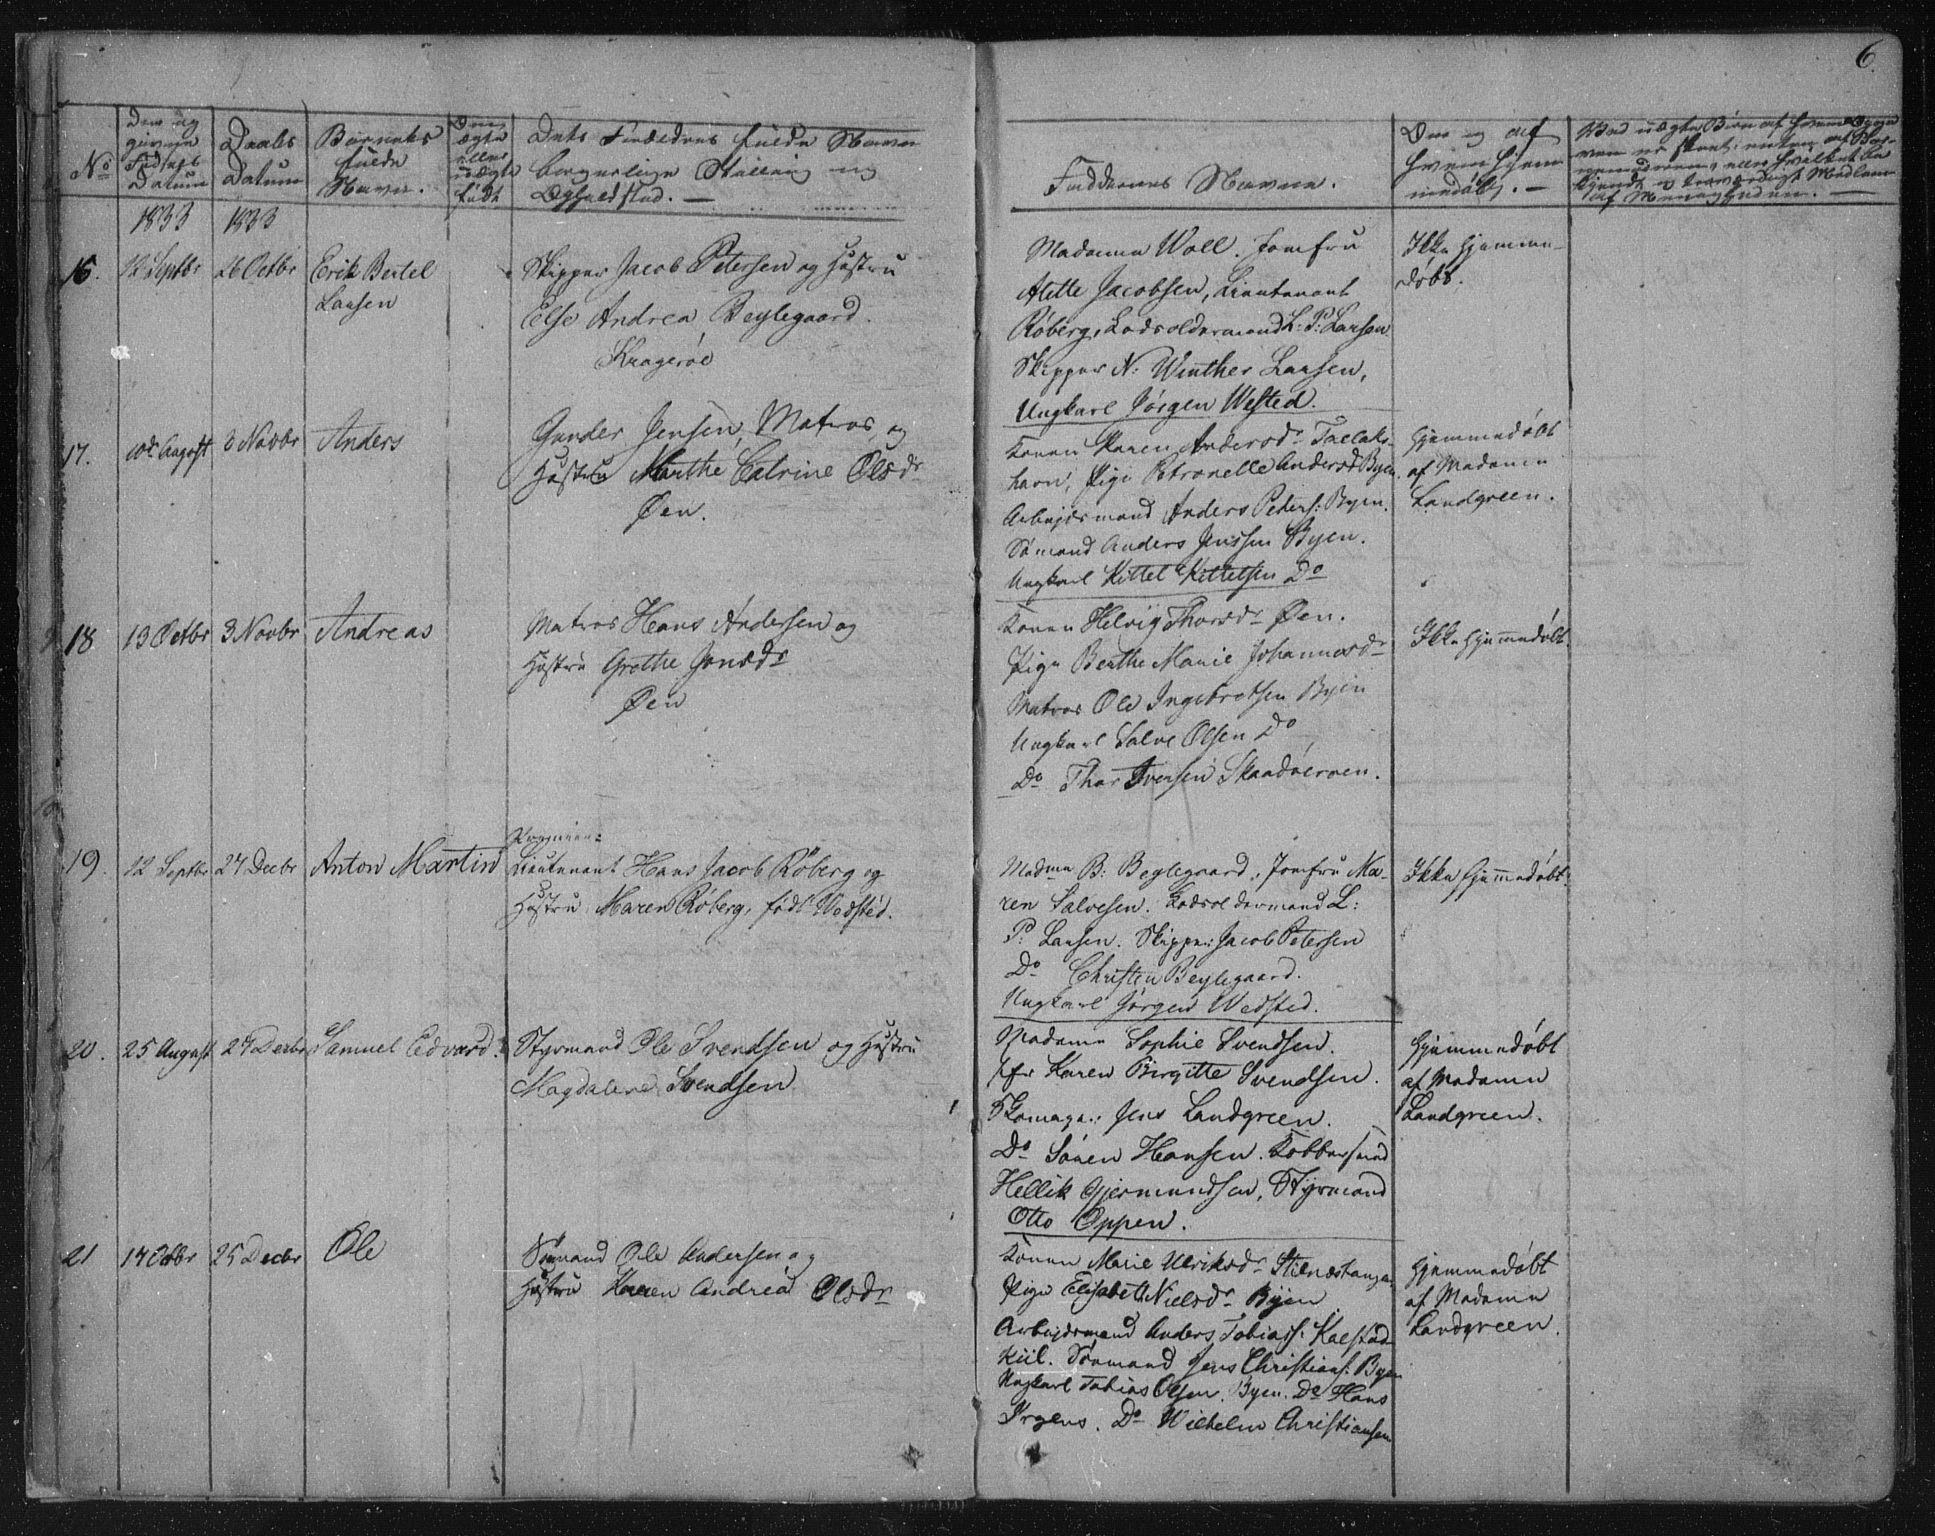 6.
No
Den og
given
Fødsels
Datum
Daabs
Datum
Barnets
fulde
Navn.
Om
ægte
eller
uægte
født
Dets Forældres fulde Navne
borgerlige Stilling og
Opholdsted. —
Faddernes Navne.
Om og af
hvem hjem
medøbt. —
1833 1833
16. 12 Septbr 26 Octbr Erik Bertel
Larsen
Skipper Jacob Petersen og Hustru
Else Andrea Beylegaard.
Kragerøe
Madame Woll. Jomfru
Alette Jacobsen, Lieutenant
Röberg, Lodsoldermand L: P: Larsen
Skipper N: Winther Larsen,
Ungkarl Jörgen Wested.
Ikke hjemme-
døbt.
17. August 3 Novbr Anders
Gunder Jensen, Matros, og
Hustru Marthe Catrine Olsdr
Øen.
Konen Karen Andersdr
havn, Pige Petronelle Andersd Byen
Arbejdsmand Anders Peders: Byen.
Sömand Anders Jenssen Byen.
Ungkarl Kittel Kittelsen Do
Hjemmedøbt
af Madame
Landgreen.
18 13 Octbr 3 Novbr Andreas
Matros Hans Andersen og
Hustru Grethe Jonsdr
Øen
Konen Helvig Thorsdr Øen.
Pige Berthe Marie Johannesdr
Matros Ole Ingebretsen Byen
Ungkarl Salve Olsen Do
Do Thor Iversen Skaadøeroen.
Ikke hjemmedøbt
19. 12 Septbr 27 Decbr Anton Martin
Premier:
Lieutenant Hans Jacob Röberg og
Hustru Maren Röberg, født Wedsted.
Madme B: Beylegaard, Jomfru Ma-
ren Salvesen. Lodsoldermand L:
P: Larsen. Skipper: Jacob Petersen
Do Christen Beylegaard.
Ungkarl Jörgen Wedsted.
Ikke hjemmedøbt.
20. 25 August 27 Decbr Samuel Edvard.
Styrmand Ole Svendsen og Hustru
Magdalene Svendsen
Madame Sophie Svendsen.
Jfr Karen Birgitte Svendsen.
Jens Landgreen.
Do Sören Hansen. Kobbersmed
Hellik Gjermundsen, Styrmand
Otto Oppen.
Hjemmedøbt
af Madame
Landgreen.
21 17 Octbr 25 Decbr Ole
Sömand Ole Andersen og
Hustru Karen Andrea Olsdr
Konen Marie Ulriksdr Stilnæstangen
Pige Elisabeth Nielsdr Byen
Arbejdsmand Anders Tobiass: Kalstad-
kiil. Sömand Jens Christians: Byen
Ungkarl Tobias Olsen. Byen. Do Hans
Irgens. Do Wilhelm Christiansen
Hjemmedøbt
af Madame
Landgreen.